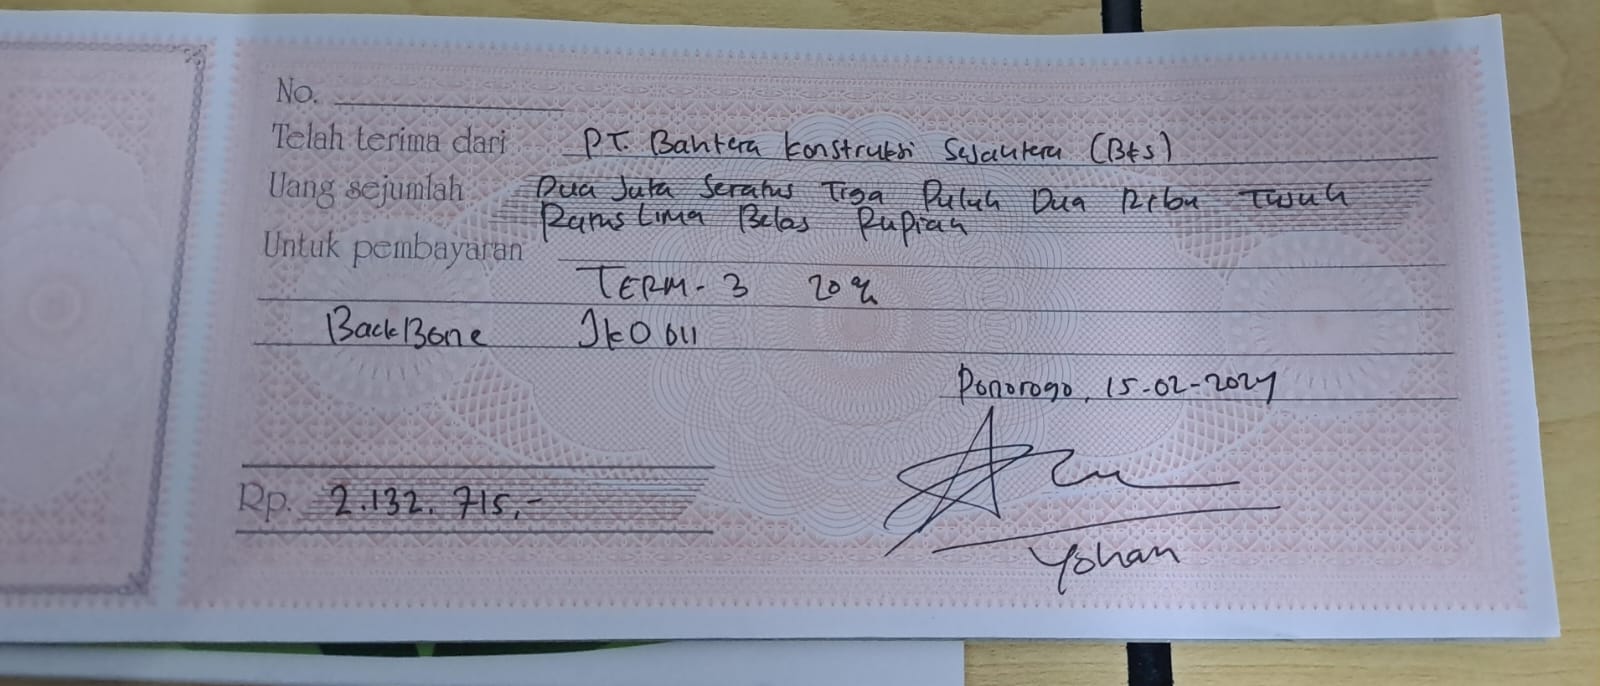 No.
Telah terima dari PT. Bahtera Konstruksi Sejahtera (BKS)
Uang sejumlah Dua Juta Seratus Tiga Puluh Dua Ribu Tujuh
Ratus Lima Belas Rupiah
Untuk pembayaran
TERM-3 20%
BackBone JKO 611
Ponorogo, 15-02-2024
Rp. 2.132.715,-
Yohan